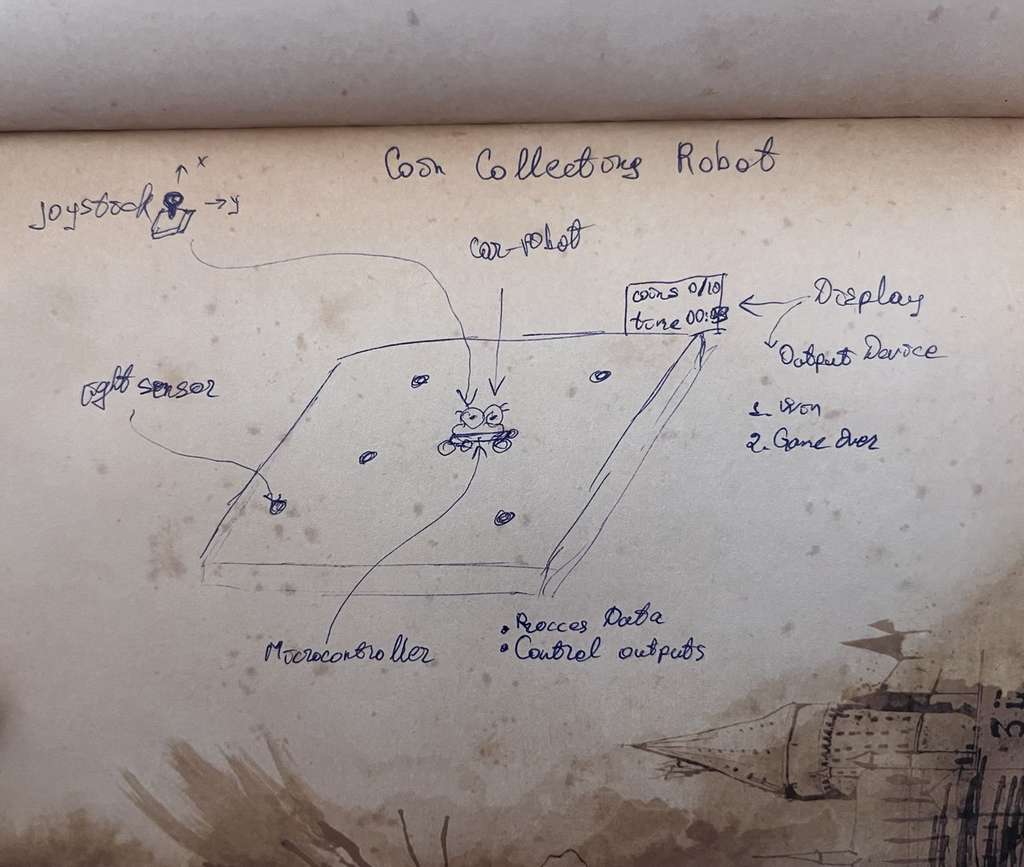 Coin Collecting Robot
x
Joystick
→y
car-robot
coins 0/10
time 00:
Display
Output Device
light sensor
1. Won
2. Game Over
Microcontroller
• Procces Data
• Control outputs
34